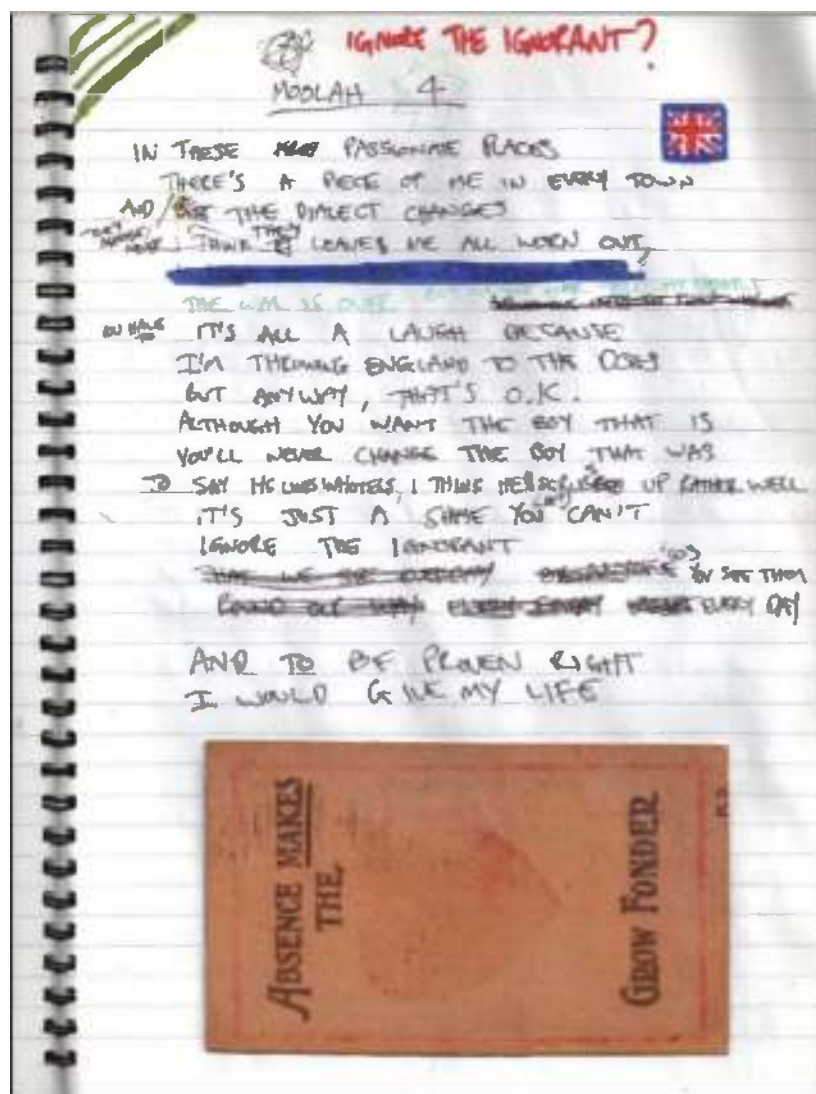 IGNORE THE IGNORANT?
MOOLAH 4
IN THESE PASSIONATE PLACES
THERE'S A PIECE OF ME IN EVERY TOWN
AND / BUT THE DIALECT CHANGES
THINK THEY LEAVES ME ALL WORN OUT,
THE WAR IS OVER
IT'S ALL A LAUGH BECAUSE
I'M THROWING ENGLAND TO THE DOGS
BUT ANYWAY, THAT'S O.K.
ALTHOUGH YOU WANT THE BOY THAT IS
YOU'LL NEVER CHANGE THE BOY THAT WAS
TO SAY HE LIVES I THINK HE SCRUBS UP RATHER WELL
IT'S JUST A SHAME YOU CAN'T
IGNORE THE IGNORANT
YOU SEE THEM
EVERY DAY
AND TO BE PROVEN RIGHT
I WOULD GIVE MY LIFE
ABSENCE MAKES
THE
GROW FONDER